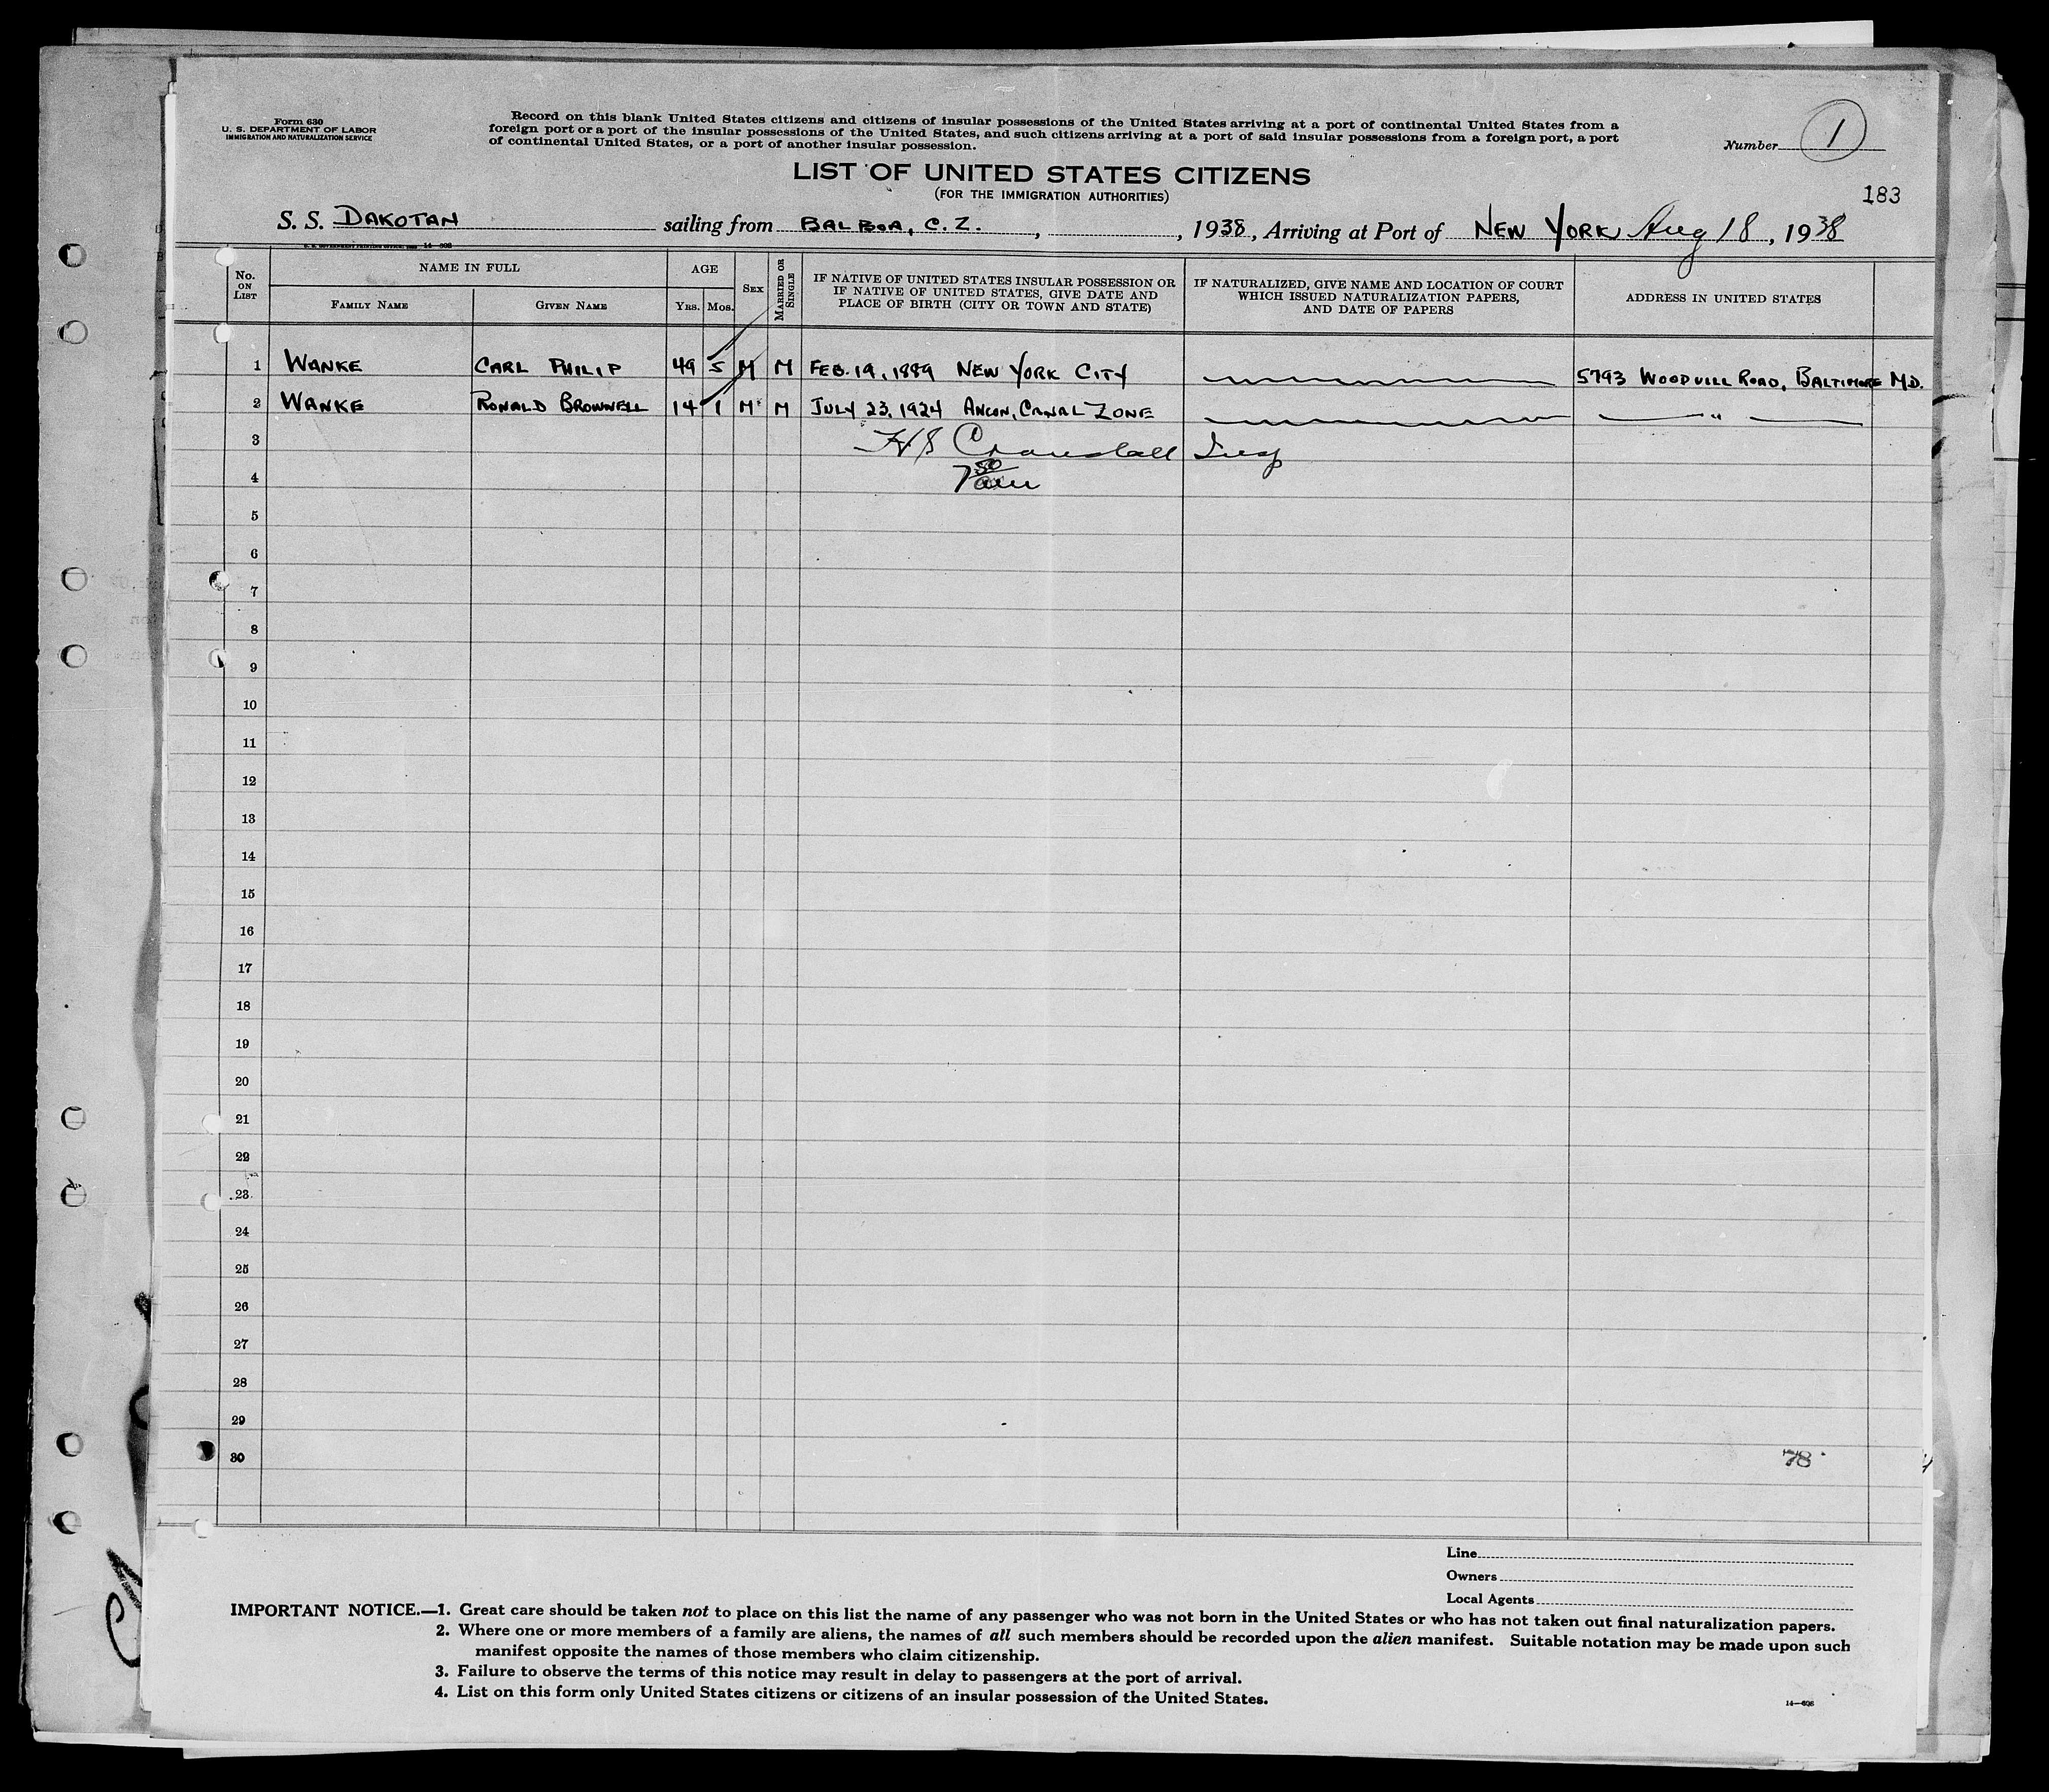 Form 630
U. S. DEPARTMENT OF LABOR
IMMIGRATION AND NATURALIZATION SERVICE
Record on this blank United States citizens and citizens of insular possessions of the United States arriving at a port of continental United States from a
foreign port or a port of the insular possessions of the United States, and such citizens arriving at a port of said insular possessions from a foreign port, a port
of continental United States, or a port of another insular possession.
Number 1
LIST OF UNITED STATES CITIZENS
(FOR THE IMMIGRATION AUTHORITIES)
183
S. S. DAKOTAN sailing from BALBOA, C. Z. , , 1938, Arriving at Port of NEW YORK Aug 18, 1938
No. ON LIST
NAME IN FULL
FAMILY NAME
GIVEN NAME
AGE
YRS. MOS.
SEX
MARRIED OR SINGLE
IF NATIVE OF UNITED STATES INSULAR POSSESSION OR
IF NATIVE OF UNITED STATES, GIVE DATE AND
PLACE OF BIRTH (CITY OR TOWN AND STATE)
IF NATURALIZED, GIVE NAME AND LOCATION OF COURT
WHICH ISSUED NATURALIZATION PAPERS,
AND DATE OF PAPERS
ADDRESS IN UNITED STATES
1 WANKE CARL PHILIP 49 5 M M FEB. 19, 1889 NEW YORK CITY 5793 ROAD, BALTIMORE MD.
2 WANKE RONALD BROWNELL 14 1 M M JULY 23, 1924 ANCON, CANAL ZONE "
3 H S Crandall Insp
4 7 30 am
5
6
7
8
9
10
11
12
13
14
15
16
17
18
19
20
21
22
23
24
25
26
27
28
29
30 78
Line
Owners
Local Agents
IMPORTANT NOTICE.—1. Great care should be taken not to place on this list the name of any passenger who was not born in the United States or who has not taken out final naturalization papers.
2. Where one or more members of a family are aliens, the names of all such members should be recorded upon the alien manifest. Suitable notation may be made upon such
manifest opposite the names of those members who claim citizenship.
3. Failure to observe the terms of this notice may result in delay to passengers at the port of arrival.
4. List on this form only United States citizens or citizens of an insular possession of the United States.